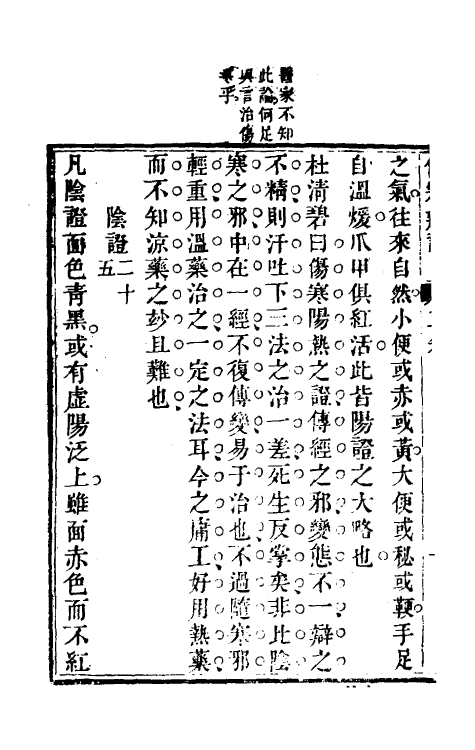 醫家不知
此論何足
與言治傷
寒乎
之氣往來自然小便或赤或黃大便或秘或鞕手足
自溫煖爪甲俱紅活此皆陽證之大略也
杜清碧曰傷寒陽熱之證傳經之邪變態不一辯之
不精則汗吐下三法之治一差死生反掌矣非比陰
寒之邪中在一經不復傳變易于治也不過隨寒邪
輕重用溫藥治之一定之法耳今之庸工好用熱藥
而不知涼藥之玅且難也
陰證二十五
凡陰證面色青黑或有虛陽泛上雖面赤色而不紅